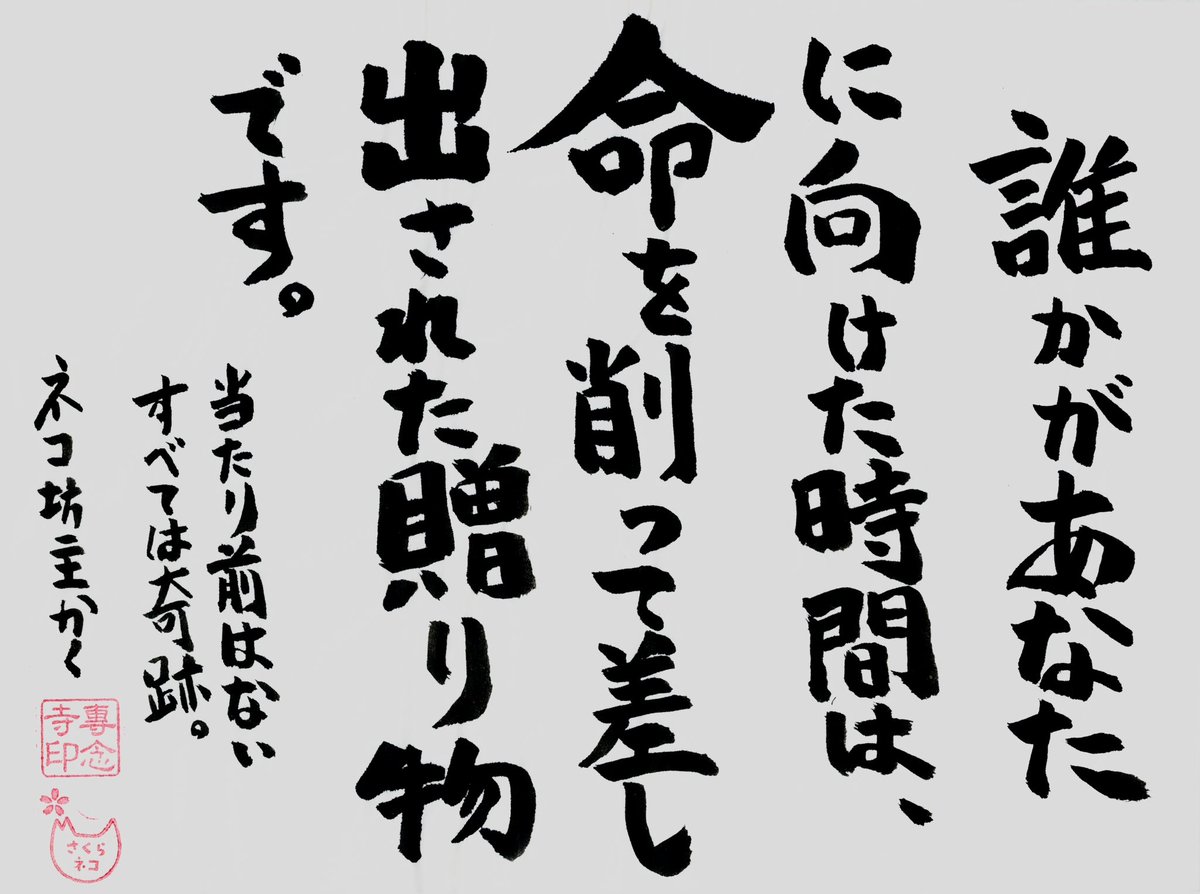 誰かがあなた
に向けた時間は、
命を削って差し
出された贈り物
です。
当たり前はない
すべては奇跡。
ネコ坊主かく
專念
寺印
さくら
ネコ